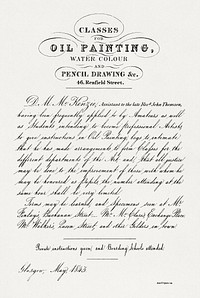 CLASSES
FOR
OIL PAINTING,
WATER COLOUR
AND
PENCIL DRAWING &c.
46, Renfield Street.
D. M. McKenzie, Assistant to the late Revd. John Thomson,
having been frequently applied to by Amateurs as well
as Students intending to become Professional Artists,
to give instructions in Oil Painting, begs to intimate
that he has made arrangements to form Classes for the
different departments of the Art and that all justice
may be done to the improvement of those with whom he
may be honoured as Pupils the number attending at the
same hour shall be very limited.
Terms may be learned, and Specimens seen at Mr.
Finlay's, Buchanan Street, Mr. McClure's Exchange Place
Mr. Walker's, Queen Street, and other Gilders in town
Private instructions given, and Boarding Schools attended
Glasgow, May, 1843.